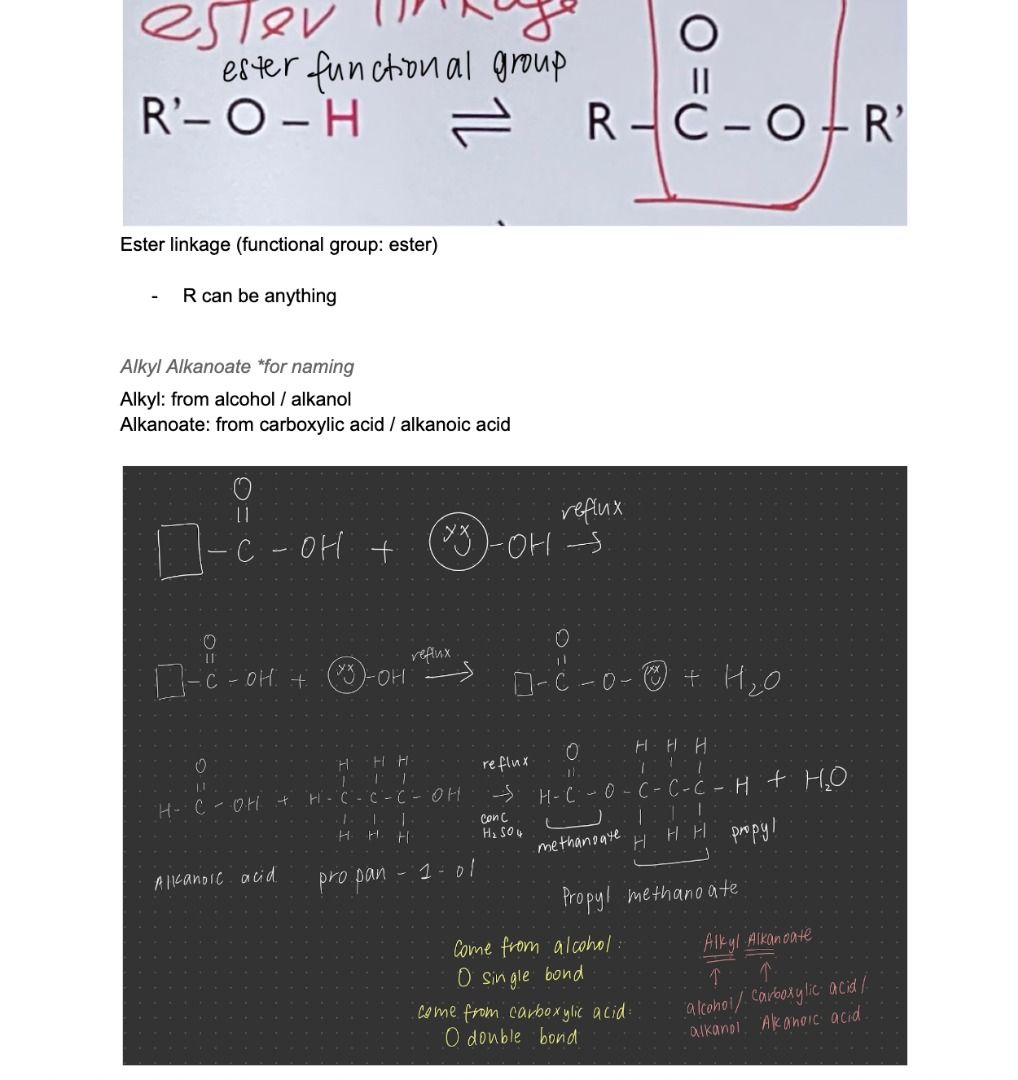 ester linkage
ester functional group
O
||
R'– O – H ⇌ R – C – O – R'
Ester linkage (functional group: ester)
- R can be anything
Alkyl Alkanoate *for naming
Alkyl: from alcohol / alkanol
Alkanoate: from carboxylic acid / alkanoic acid
O
||
– C – OH + –OH reflux →
O O
|| ||
– C – OH + –OH reflux → – C – O – + H₂O
O H H H reflux O H H H
|| | | | || | | |
H – C – OH + H – C – C – C – OH → H – C – O – C – C – C – H + H₂O
| | | conc | | |
H H H H₂SO₄ methanoate H H H propyl
Alkanoic acid propan – 1 – ol
Propyl methanoate
Come from alcohol:
O single bond
come from carboxylic acid:
O double bond
Alkyl Alkanoate
↑ ↑
alcohol / carboxylic acid /
alkanol Alkanoic acid